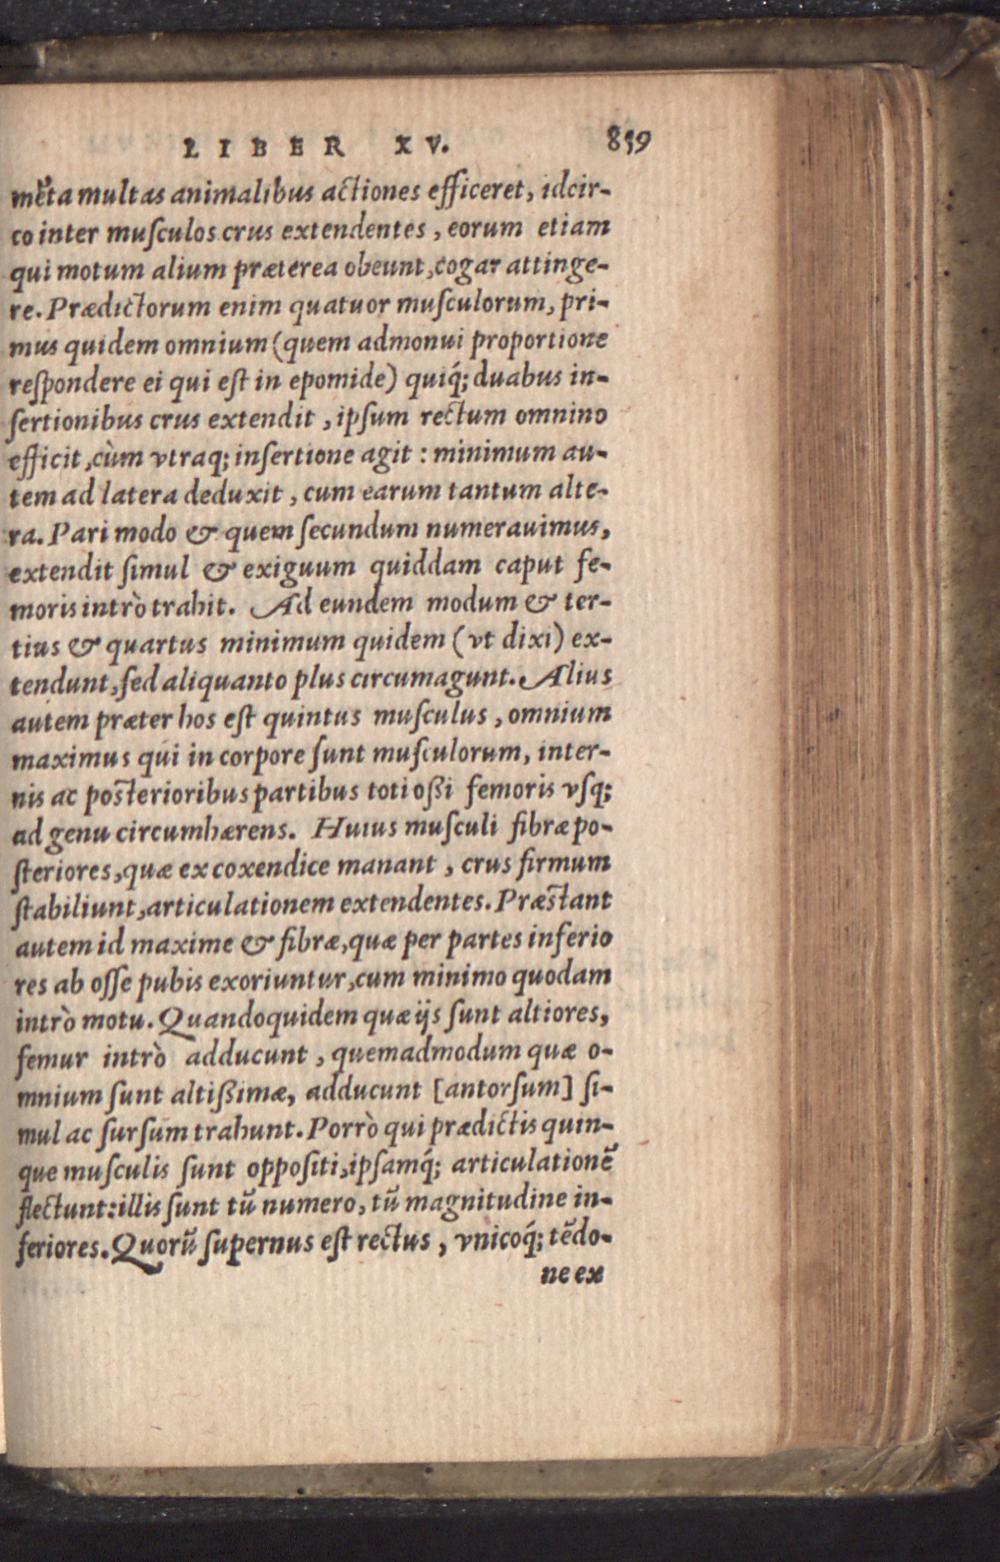 LIBER XV. 859
mẽta multas animalibus actiones efficeret, idcir-
co inter muſculos crus extendentes, eorum etiam
qui motum alium præterea obeunt, cogar attinge-
re. Prædictorum enim quatuor muſculorum, pri-
mus quidem omnium (quem admonui proportione
reſpondere ei qui eſt in epomide) quiq́; duabus in-
ſertionibus crus extendit, ipſum rectum omnino
efficit, cùm vtraq; inſertione agit: minimum au-
tem ad latera deduxit, cum earum tantum alte-
ra. Pari modo & quem ſecundum numerauimus,
extendit ſimul & exiguum quiddam caput fe-
moris intrò trahit. Ad eundem modum & ter-
tius & quartus minimum quidem (vt dixi) ex-
tendunt, ſed aliquanto plus circumagunt. Alius
autem præter hos eſt quintus muſculus, omnium
maximus qui in corpore ſunt muſculorum, inter-
nis ac poſterioribus partibus toti oßi femoris vſq;
ad genu circumhærens. Huius muſculi fibræ po-
ſteriores, quæ ex coxendice manant, crus firmum
ſtabiliunt, articulationem extendentes. Præſtant
autem id maxime & fibræ, quæ per partes inferio
res ab oſſe pubis exoriuntur, cum minimo quodam
intrò motu. Quandoquidem quæ ijs ſunt altiores,
femur intrò adducunt, quemadmodum quæ o-
mnium ſunt altißimæ, adducunt [antorſum] ſi-
mul ac ſurſum trahunt. Porrò qui prædictis quin-
que muſculis ſunt oppoſiti, ipſamq́; articulationẽ
flectunt: illis ſunt tũ numero, tũ magnitudine in-
feriores. Quorũ ſupernus eſt rectus, vnicoq́; tẽdo-
ne ex